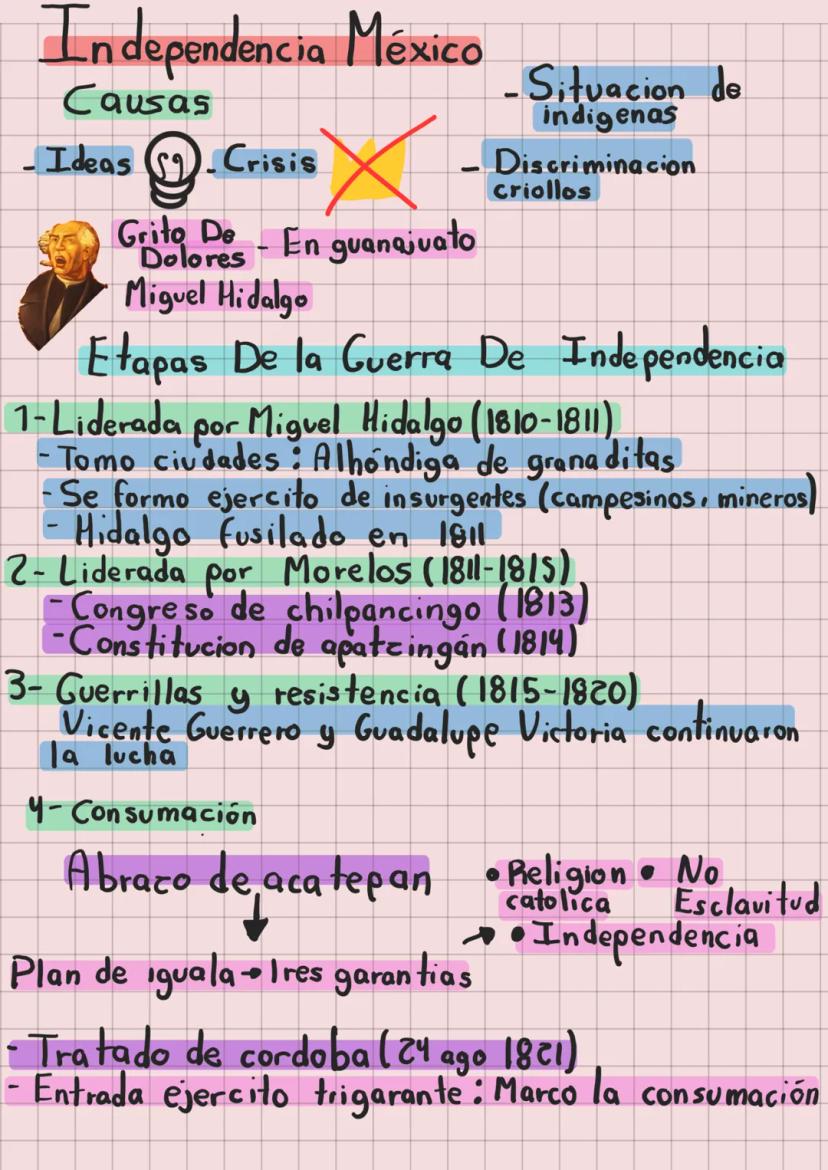 Independencia México
Causas
- Situacion de
indigenas
- Ideas
- Crisis
- Discriminacion
criollos
Grito De
Dolores
- En guanajuato
Miguel Hidalgo
Etapas De la Guerra De Independencia
1- Liderada por Miguel Hidalgo (1810-1811)
- Tomo ciudades : Alhóndiga de granaditas
- Se formo ejercito de insurgentes (campesinos, mineros)
- Hidalgo fusilado en 1811
2- Liderada por Morelos (1811-1815)
- Congreso de chilpancingo (1813)
- Constitucion de apatzingán (1814)
3- Guerrillas y resistencia (1815-1820)
Vicente Guerrero y Guadalupe Victoria continuaron
la lucha
4- Consumación
Abrazo de acatepan
• Religion
catolica
• No
Esclavitud
→ • Independencia
Plan de iguala → Tres garantias
- Tratado de cordoba (24 ago 1821)
- Entrada ejercito trigarante : Marco la consumación